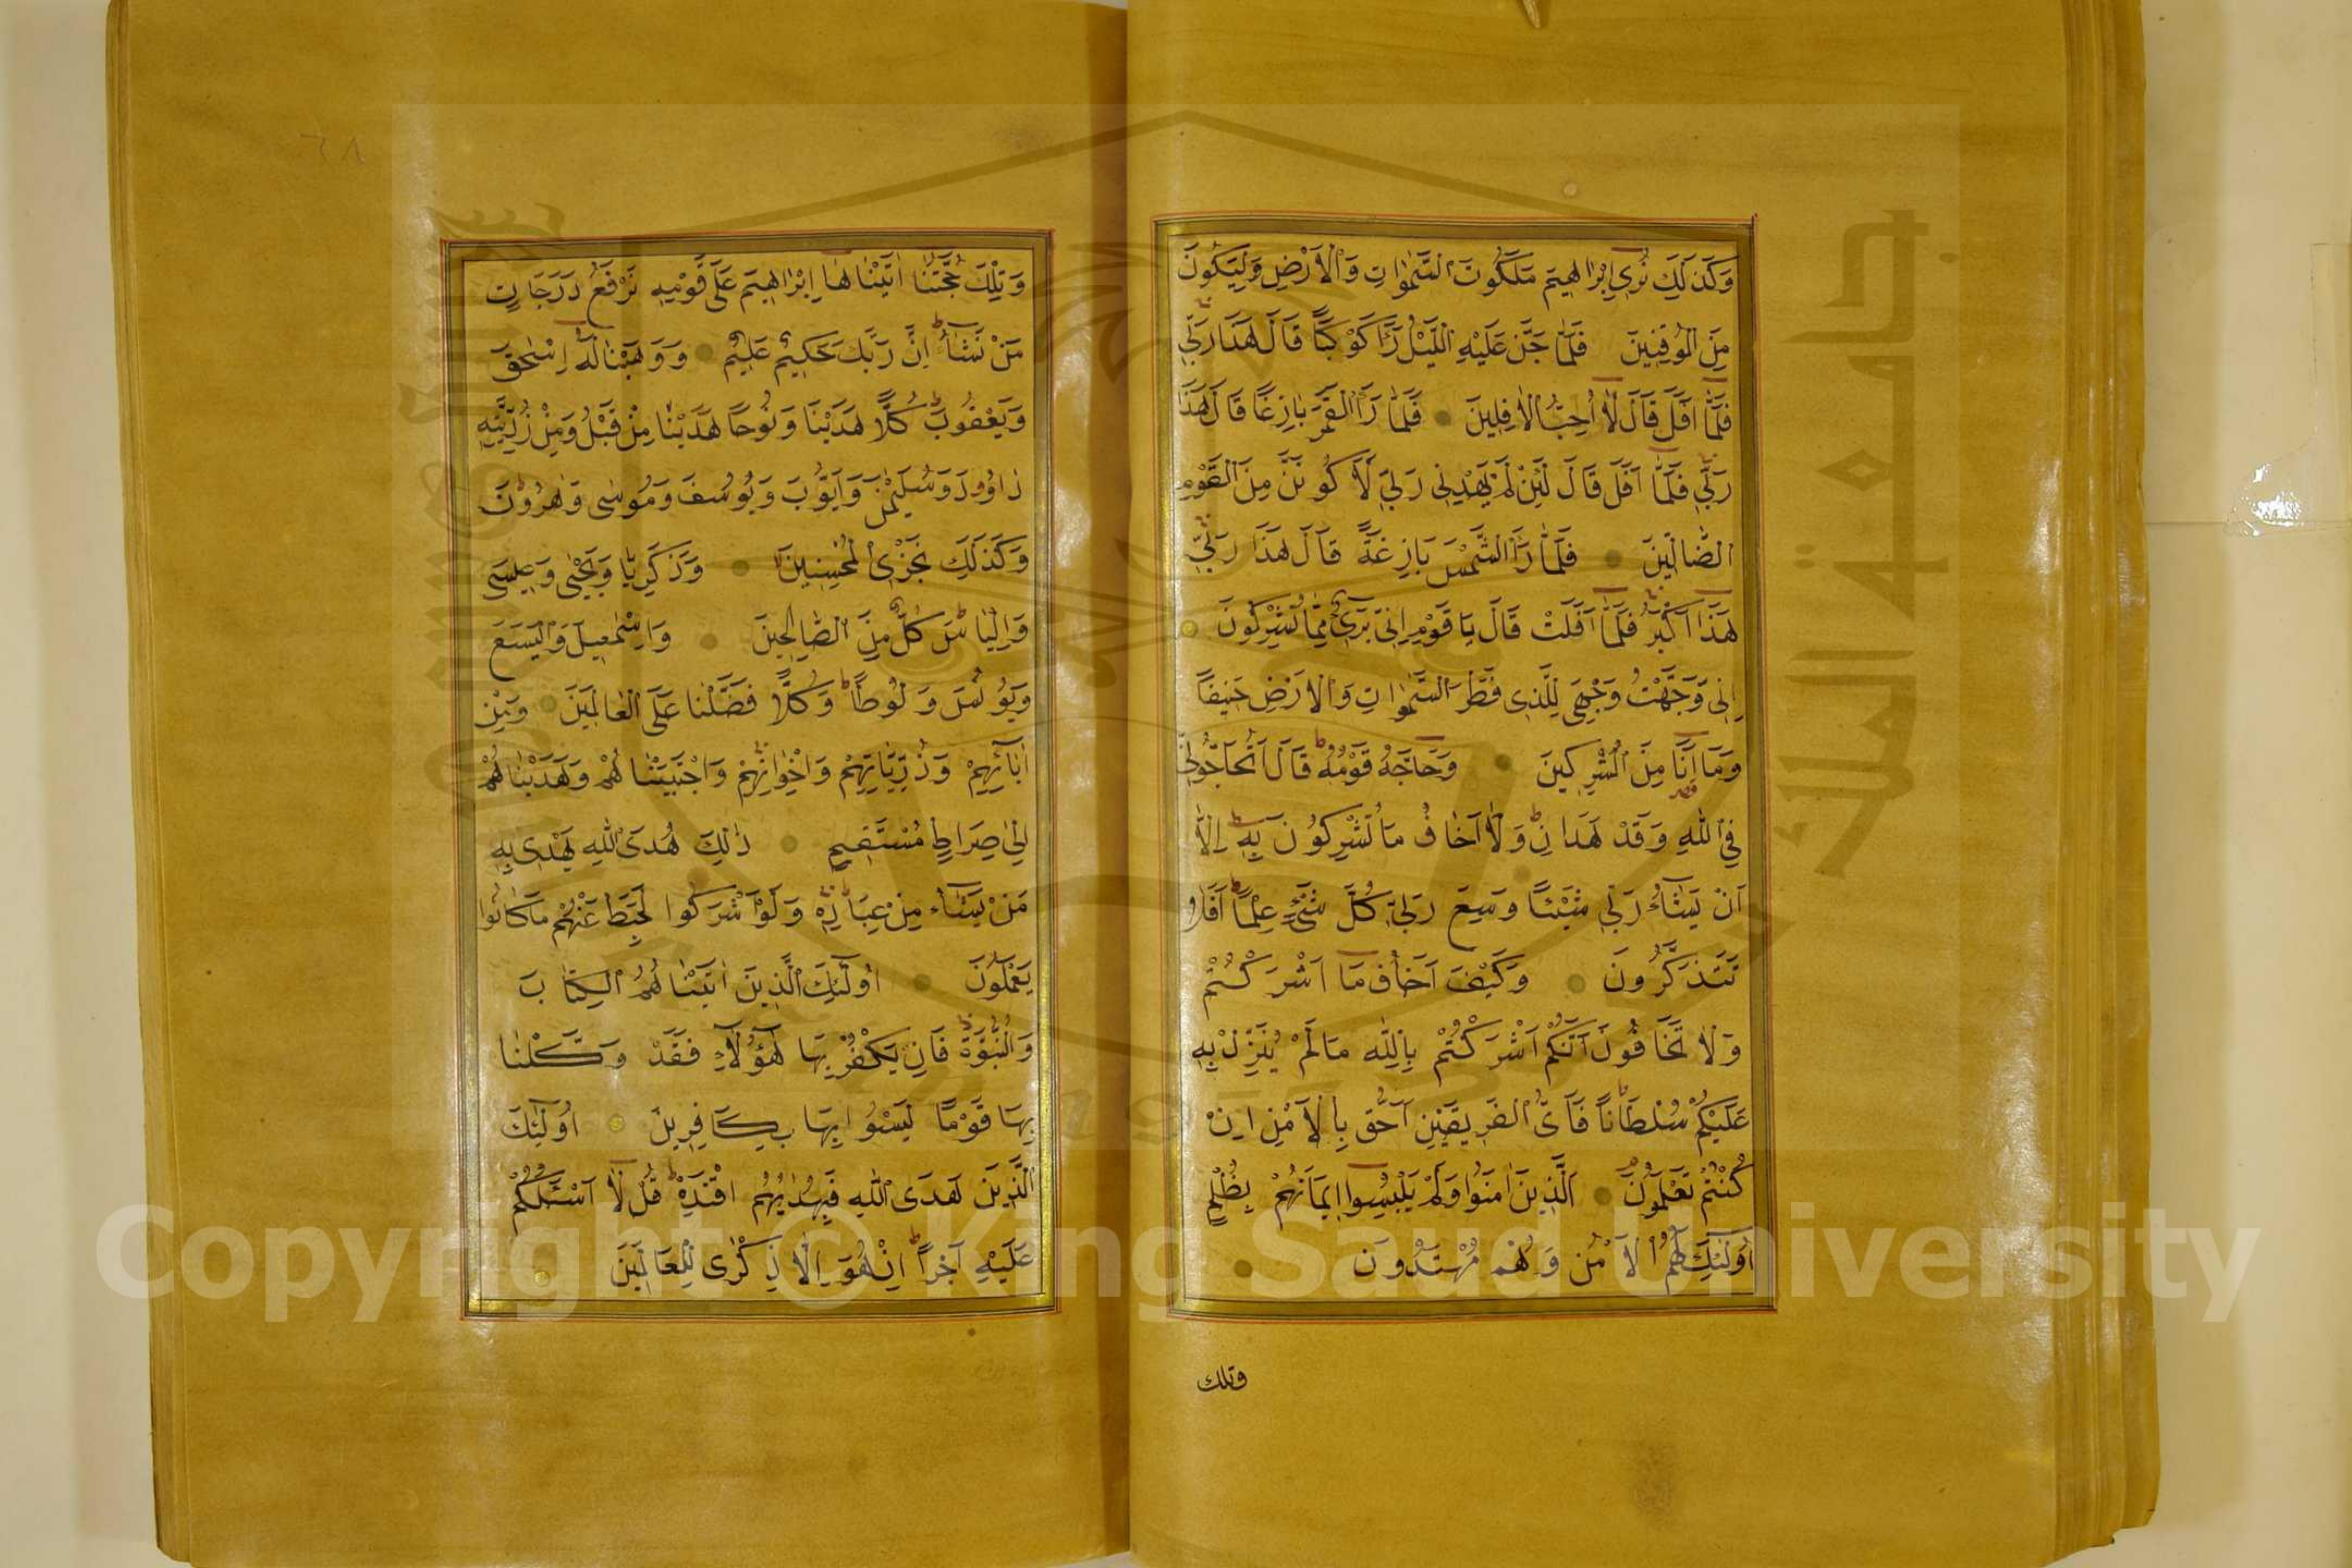 وَكَذَلِكَ نُرِى اِبْرَاهِيمَ مَلَكُوتَ السَّمٰوَاتِ وَالْاَرْضِ وَلِيَكُونَ
مِنَ الْمُوقِنِينَ فَلَمَّا جَنَّ عَلَيْهِ اللَّيْلُ رَاٰ كَوْكَبًا قَالَ هَذَا رَبِّى
فَلَمَّا اَفَلَ قَالَ لَا اُحِبُّ الْاٰفِلِينَ فَلَمَّا رَاَ الْقَمَرَ بَازِغًا قَالَ هَذَا
رَبِّى فَلَمَّا اَفَلَ قَالَ لَئِنْ لَمْ يَهْدِنِى رَبِّى لَاَكُونَنَّ مِنَ الْقَوْمِ
الضَّالِّينَ فَلَمَّا رَاَ الشَّمْسَ بَازِغَةً قَالَ هَذَا رَبِّى
هَذَا اَكْبَرُ فَلَمَّا اَفَلَتْ قَالَ يَا قَوْمِ اِنِّى بَرِىءٌ مِمَّا تُشْرِكُونَ
اِنِّى وَجَّهْتُ وَجْهِىَ لِلَّذِى فَطَرَ السَّمٰوَاتِ وَالْاَرْضِ حَنِيفًا
وَمَا اَنَا مِنَ الْمُشْرِكِينَ وَحَاجَّهُ قَوْمُهُ قَالَ اَتُحَاجُّونِّى
فِى اللهِ وَقَدْ هَدَانِ وَلَا اَخَافُ مَا تُشْرِكُونَ بِهِ اِلَّا
اَنْ يَشَاءَ رَبِّى شَيْئًا وَسِعَ رَبِّى كُلَّ شَىْءٍ عِلْمًا اَفَلَا
تَتَذَكَّرُونَ وَكَيْفَ اَخَافُ مَا اَشْرَكْتُمْ
وَلَا تَخَافُونَ اَنَّكُمْ اَشْرَكْتُمْ بِاللهِ مَا لَمْ يُنَزِّلْ بِهِ
عَلَيْكُمْ سُلْطَانًا فَاَىُّ الْفَرِيقَيْنِ اَحَقُّ بِالْاَمْنِ اِنْ
كُنْتُمْ تَعْلَمُونَ اَلَّذِينَ اٰمَنُوا وَلَمْ يَلْبِسُوا اِيمَانَهُمْ بِظُلْمٍ
اُولٰئِكَ لَهُمُ الْاَمْنُ وَهُمْ مُهْتَدُونَ
وتلك
٦٨
وَتِلْكَ حُجَّتُنَا اٰتَيْنَاهَا اِبْرَاهِيمَ عَلَى قَوْمِهِ نَرْفَعُ دَرَجَاتٍ
مَنْ نَشَاءُ اِنَّ رَبَّكَ حَكِيمٌ عَلِيمٌ وَوَهَبْنَا لَهُ اِسْحٰقَ
وَيَعْقُوبَ كُلًّا هَدَيْنَا وَنُوحًا هَدَيْنَا مِنْ قَبْلُ وَمِنْ ذُرِّيَّتِهِ
دَاوُودَ وَسُلَيْمٰنَ وَاَيُّوبَ وَيُوسُفَ وَمُوسٰى وَهٰرُونَ
وَكَذَلِكَ نَجْزِى الْمُحْسِنِينَ وَزَكَرِيَّا وَيَحْيٰى وَعِيسَى
وَاِلْيَاسَ كُلٌّ مِنَ الصَّالِحِينَ وَاِسْمٰعِيلَ وَالْيَسَعَ
وَيُونُسَ وَلُوطًا وَكُلًّا فَضَّلْنَا عَلَى الْعَالَمِينَ وَمِنْ
اٰبَائِهِمْ وَذُرِّيَّاتِهِمْ وَاِخْوَانِهِمْ وَاجْتَبَيْنَاهُمْ وَهَدَيْنَاهُمْ
اِلٰى صِرَاطٍ مُسْتَقِيمٍ ذٰلِكَ هُدَى اللهِ يَهْدِى بِهِ
مَنْ يَشَاءُ مِنْ عِبَادِهِ وَلَوْ اَشْرَكُوا لَحَبِطَ عَنْهُمْ مَا كَانُوا
يَعْمَلُونَ اُولٰئِكَ الَّذِينَ اٰتَيْنَاهُمُ الْكِتَابَ
وَالْحُكْمَ وَالنُّبُوَّةَ فَاِنْ يَكْفُرْ بِهَا هٰؤُلَاءِ فَقَدْ وَكَّلْنَا
بِهَا قَوْمًا لَيْسُوا بِهَا بِكَافِرِينَ اُولٰئِكَ
الَّذِينَ هَدَى اللهُ فَبِهُدٰيهُمُ اقْتَدِهْ قُلْ لَا اَسْئَلُكُمْ
عَلَيْهِ اَجْرًا اِنْ هُوَ اِلَّا ذِكْرٰى لِلْعَالَمِينَ
جامعة الملك سعود
King Saud University
1957
Copyright © King Saud University